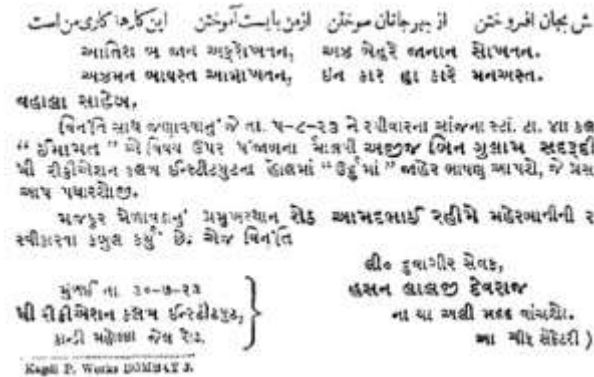 ش بجان افروختن از بهر جانان سوختن ازمن بایست آموختن این کارها کاری من است
આતિશ બ જાન અફરોખતન, અઝ બેહરે જાનાન સોખતન.
અઝમન બાયસ્ત આમોખતન, ઈન કાર હા કારે મનઅસ્ત.
વહાલા સાહેબ,
વિનંતિ સાથ જણાવવાનું જે તા. ૫-૮-૨૩ ને રવીવારના સાંજના સ્ટાં. ટા. ૪ાા કલ
“ ઈમામત ” એ વિષય ઉપર પંજાબના મીશનરી અજીજ બિન ગુલામ સદરૂદ્દી
ધી રીક્રીએશન કલબ ઈન્સ્ટીટયુટના હોલમાં “ ઉર્દુમાં ” જાહેર ભાષણ આપશે, જે પ્રસ
આપ પધારશોજી.
મજકુર મેળાવડાનું પ્રમુખસ્થાન શેઠ આમદભાઈ રહીમે મહેરબાનીની ર
સ્વીકારવા કબુલ કર્યું છે. એજ વિનંતિ
લી૦ દુવાગીર સેવક,
હસન લાલજી દેવરાજ
ના યા અલી મદદ વાંચશો.
આ સેક્રેટરી )
મુંબઈ તા ૩૦-૭-૨૩
ધી રીક્રીએશન કલબ ઈન્સ્ટીટયુટ,
કાન્દી મહોલ્લા જેલ રોડ.
Kagdi P. Works BOMBAY 3.